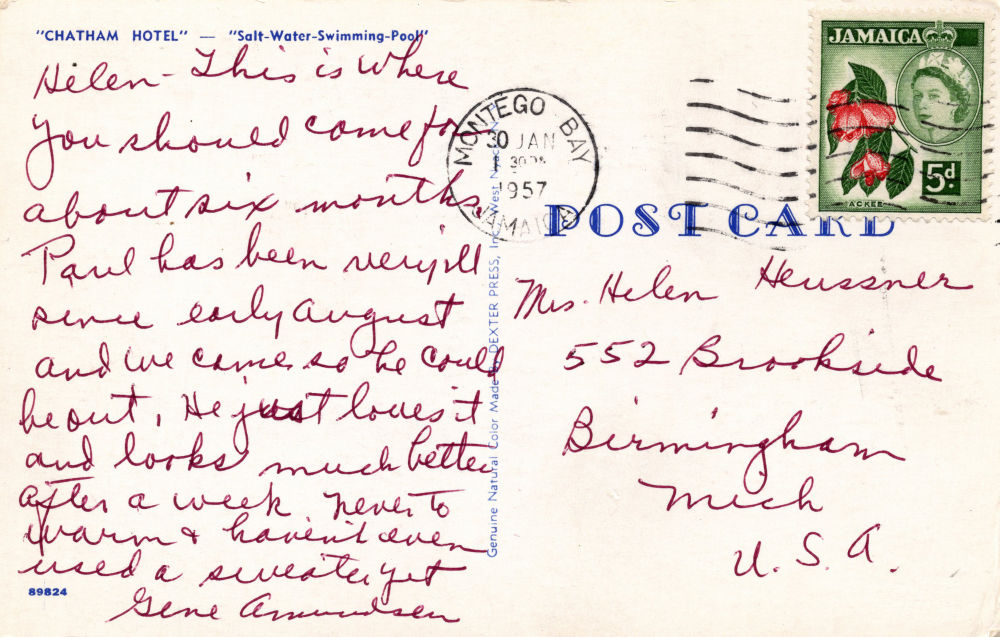 "CHATHAM HOTEL" — "Salt-Water-Swimming-Pool"
Helen - This is where
you should come for
about six months.
Paul has been very ill
since early August
and we came so he could
be out. He just loves it
and looks much better
after a week never to
warm & haven't even
used a sweater yet
Gene Amundsen
89824
Genuine Natural Color Made by DEXTER PRESS, Inc., West Nyack
MONTEGO BAY
30 JAN
1957
JAMAICA
POST CARD
JAMAICA
5d
ACKEE
Mrs. Helen Heussner
552 Brookside
Birmingham
Mich
U. S. A.